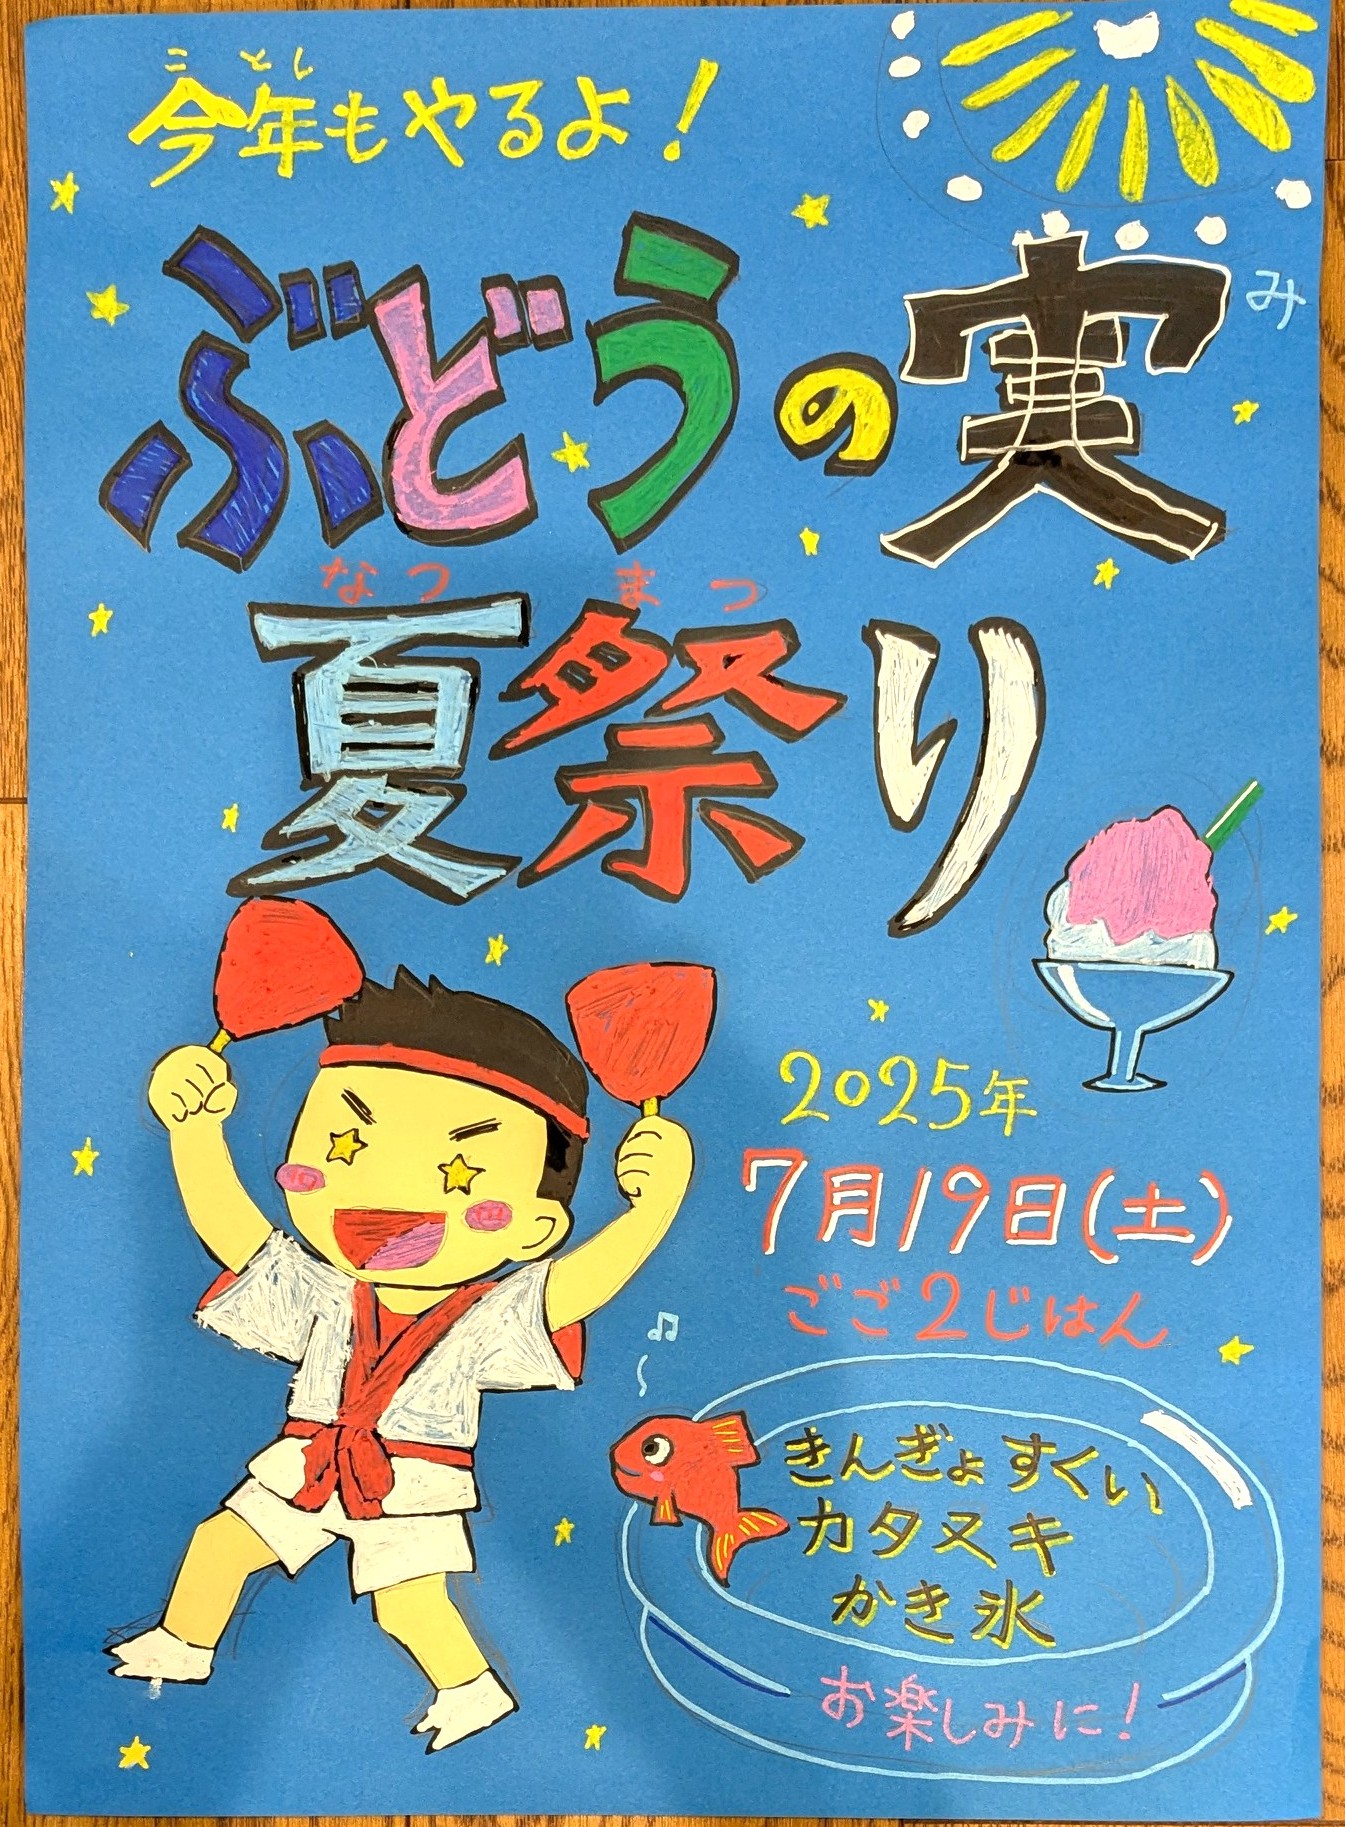 ことし
今年もやるよ！
ぶどうの実
み
なつ まつ
夏祭り
2025年
7月19日(土)
ごご2じはん
きんぎょすくい
カタヌキ
かき氷
お楽しみに！